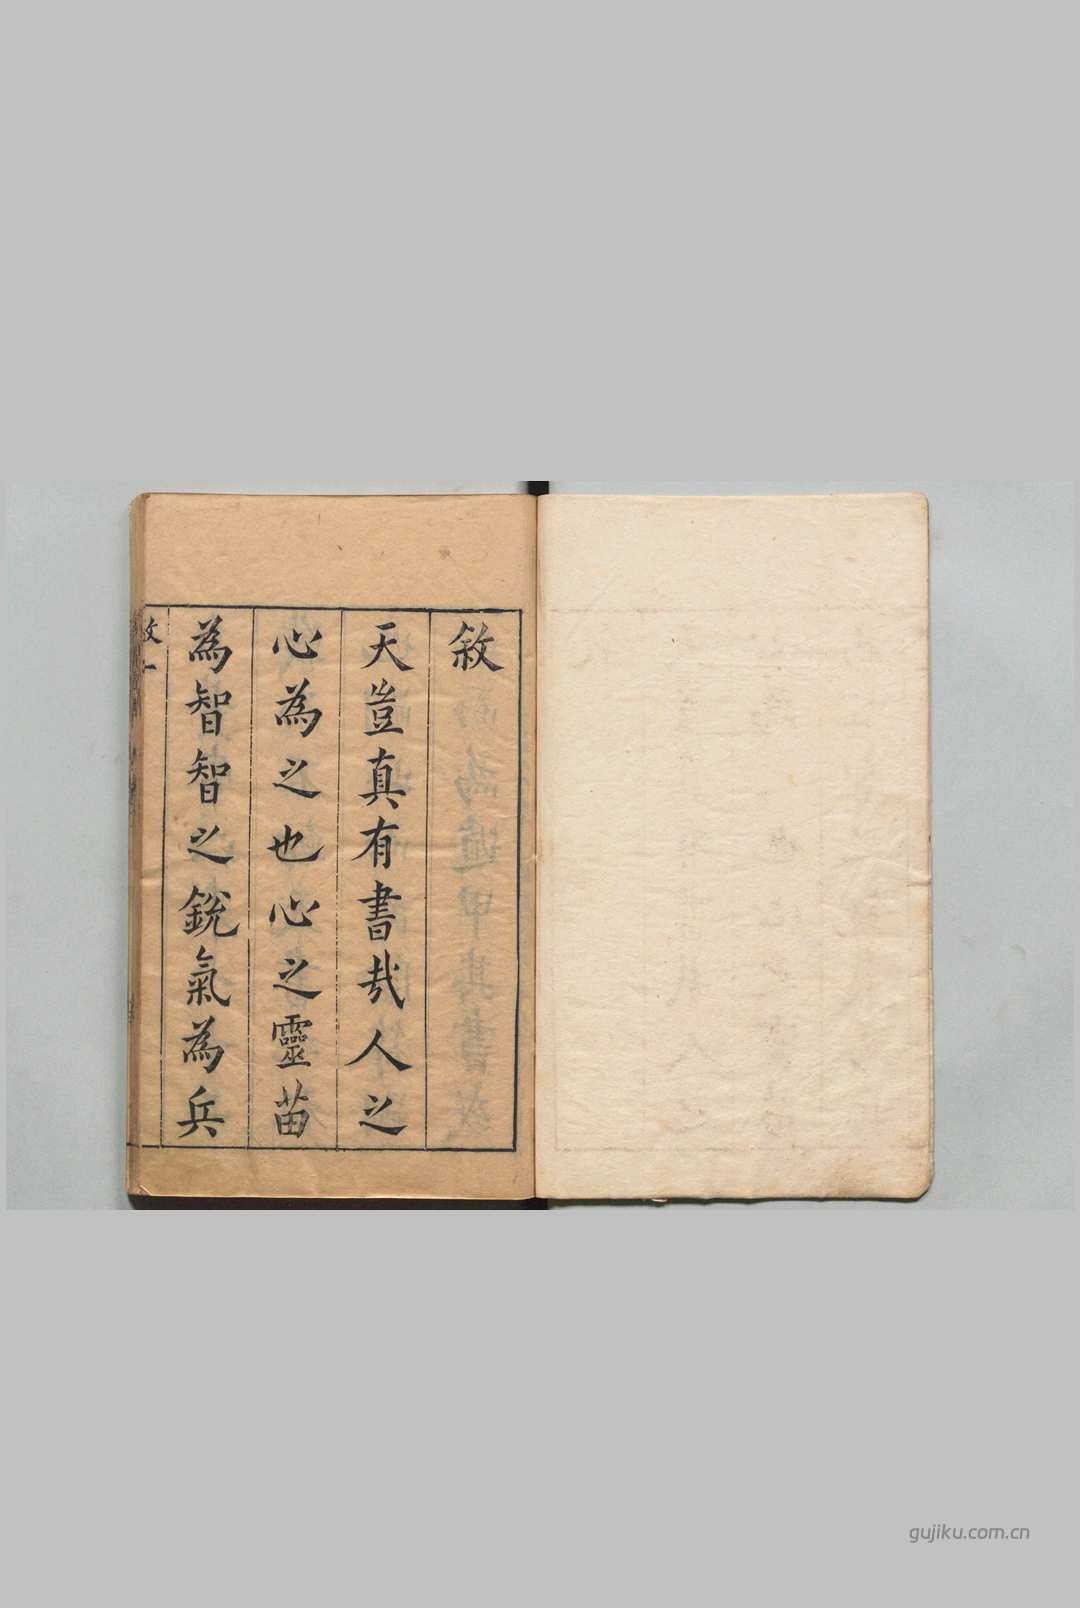 敘
天豈真有書哉人之
心為之也心之靈苗
為智智之銳氣為兵
gujiku.com.cn